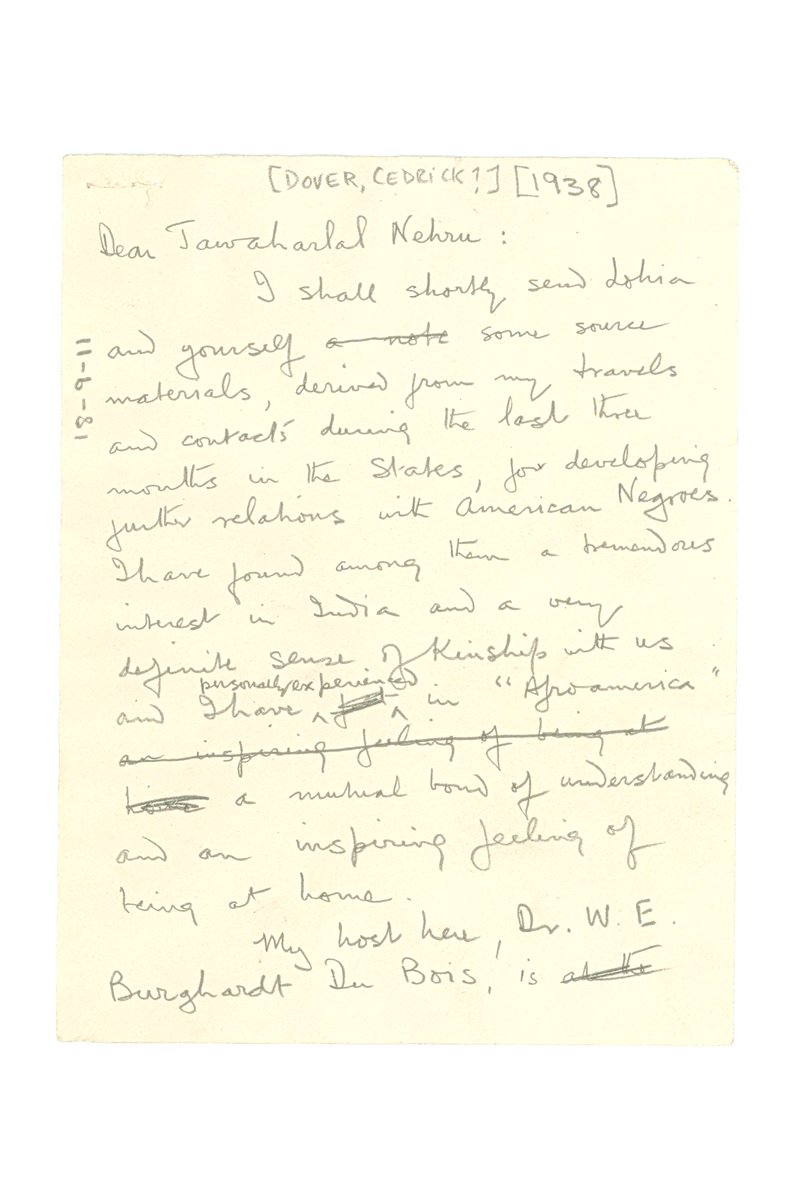 [DOVER, CEDRICK?] [1938]
Dear Jawaharlal Nehru :
I shall shortly send Lohia
and yourself a note some source
materials, derived from my travels
and contacts during the last three
months in the States, for developing
further relations with American Negroes.
I have found among them a tremendous
interest in India and a very
definite sense of Kinship with us
personally experienced
and I have felt in "Afroamerica"
an inspiring feeling of being at
home a mutual bond of understanding
and an inspiring feeling of
being at home.
My host here, Dr. W. E.
Burghardt Du Bois, is at the
11-6-81